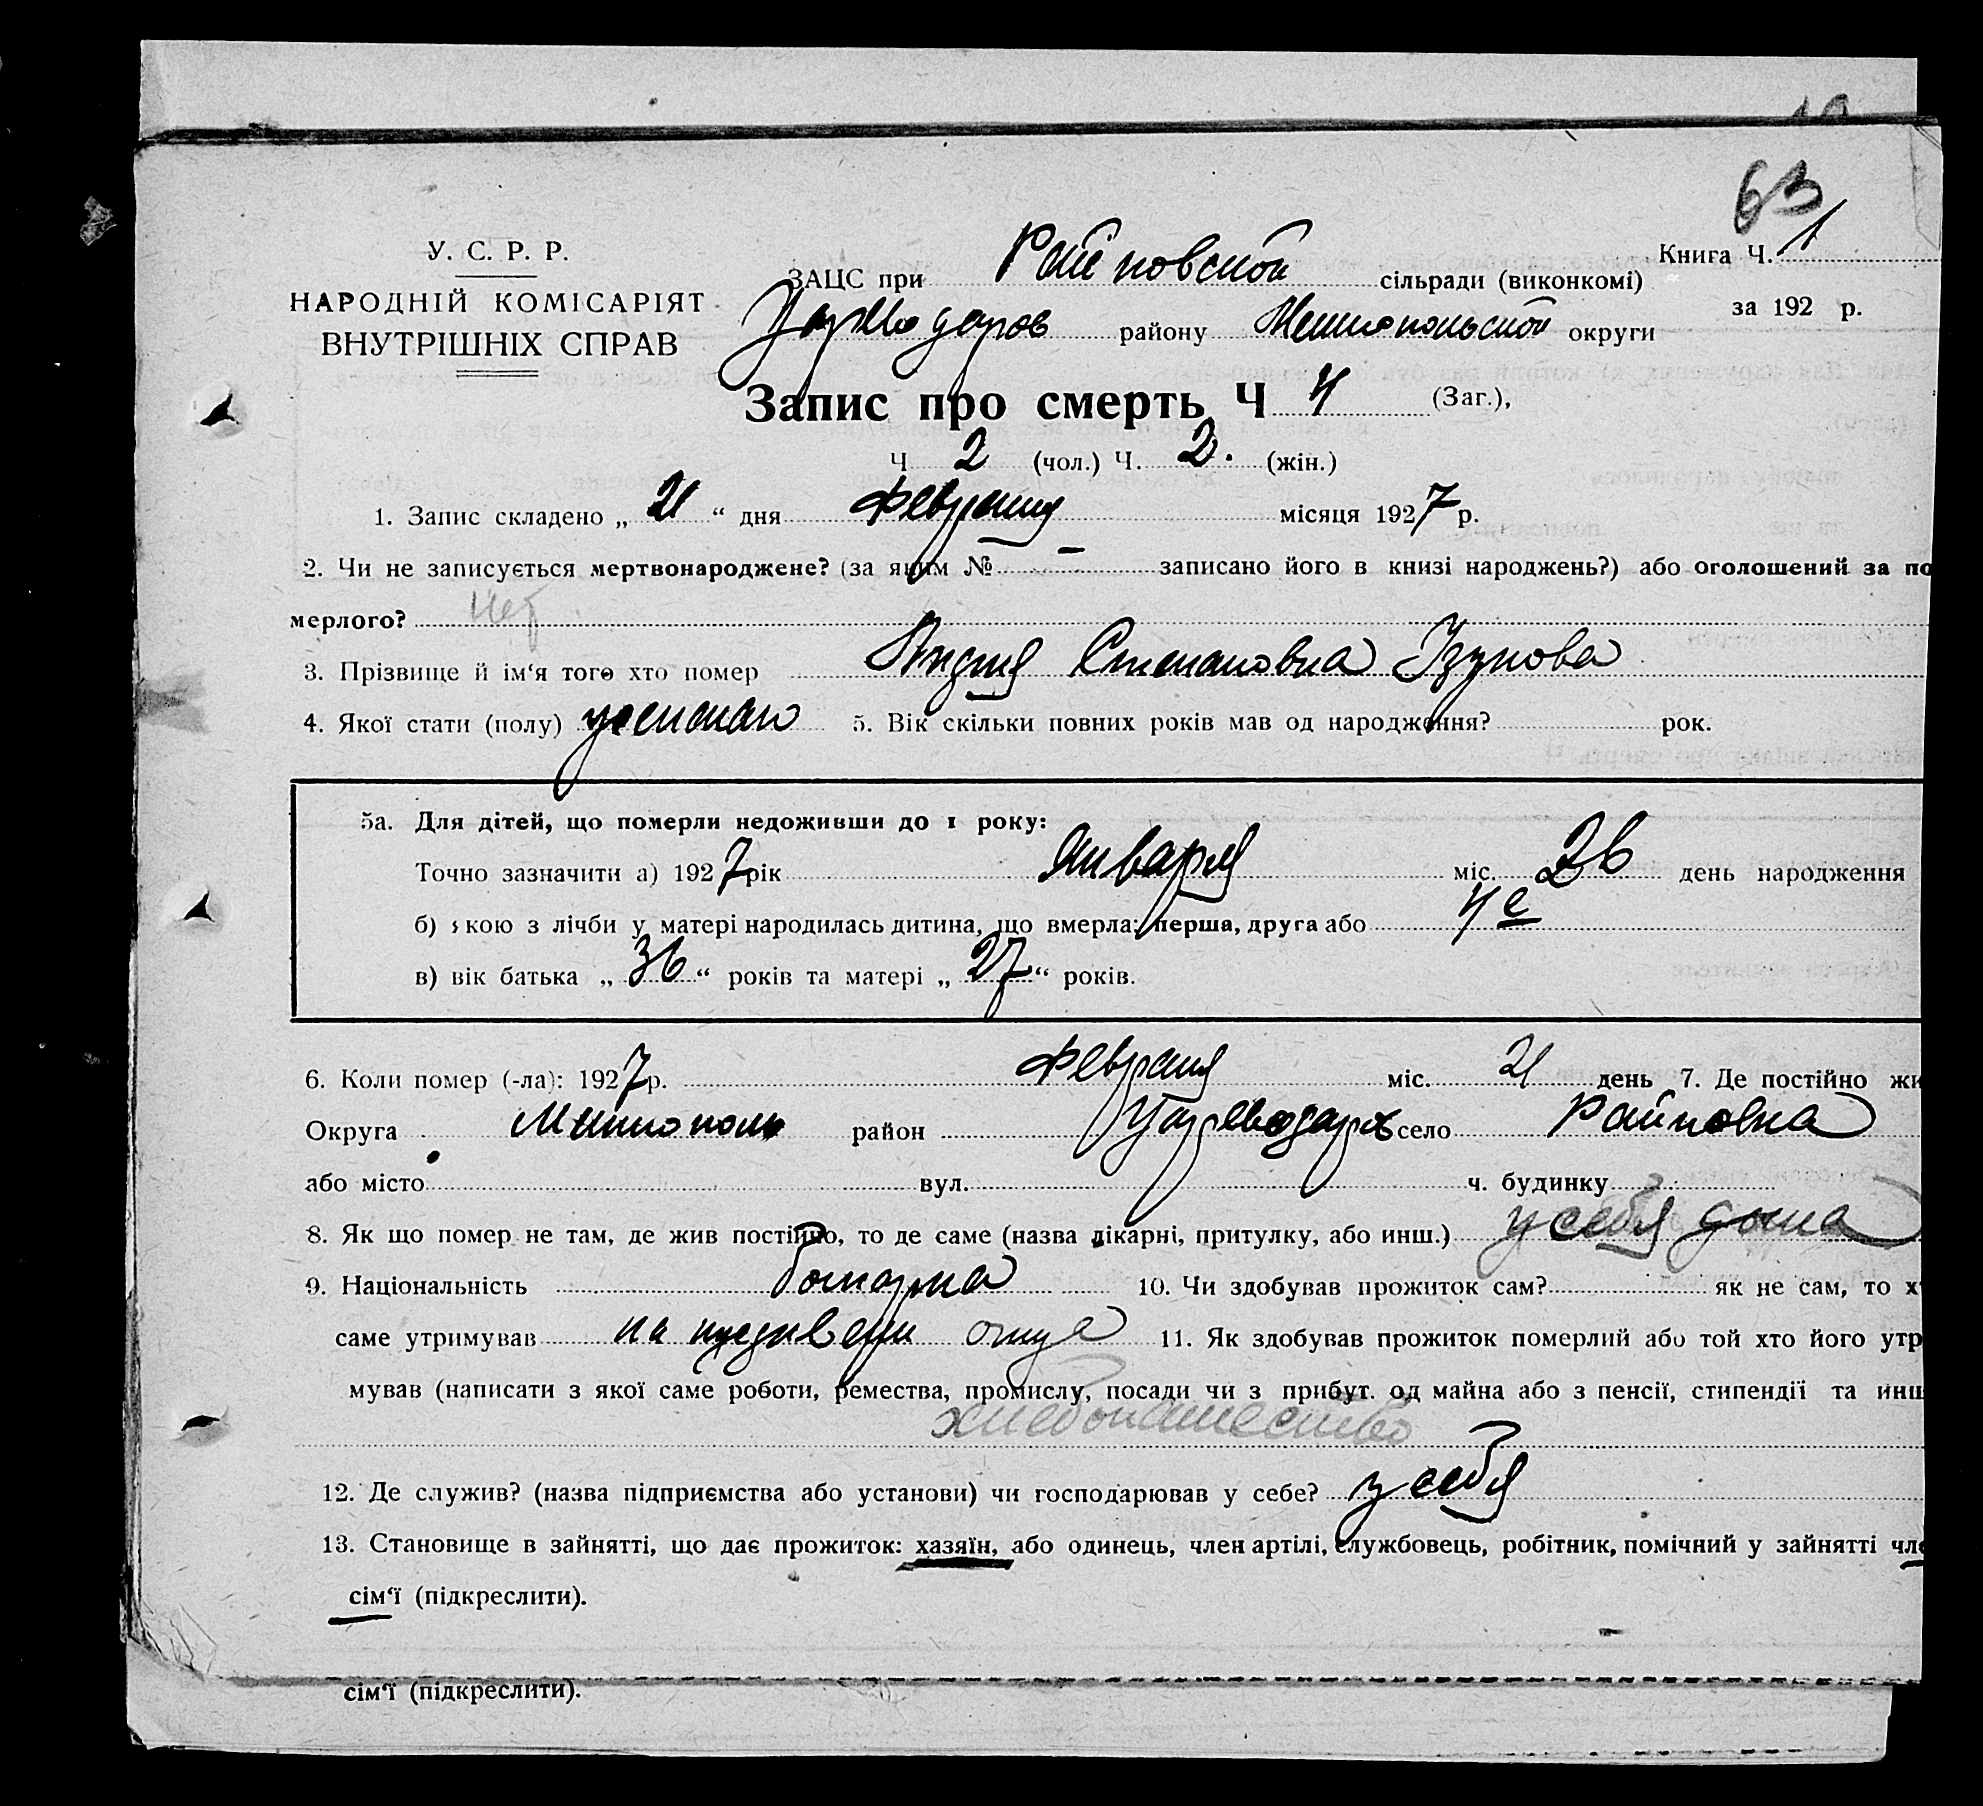 63
У. С. Р. Р.
НАРОДНІЙ КОМІСАРІЯТ
ВНУТРІШНІХ СПРАВ
Книга Ч. 1
за 192 р.
ЗАЦС при Райновской сільради (виконкомі)
району округи
Запис про смерть Ч 4 (Заг.),
Ч 2 (чол.) Ч. 2. (жін.)
1. Запис складено „ 21 “ дня Февраля місяця 1927 р.
2. Чи не записується мертвонароджене? (за яким № – записано його в книзі народжень?) або оголошений за по
мерлого? нет
3. Прізвище й ім‘я того хто помер Степановна Узунова
4. Якої стати (полу) женская 5. Вік скільки повних років мав од народження? рок.
5а. Для дітей, що померли недоживши до 1 року:
Точно зазначити а) 1927 рік Января міс. 26 день народження
б) якою з лічби у матері народилась дитина, що вмерла: перша, друга або 4е
в) вік батька „ 36 “ років та матері „ 27 “ років.
6. Коли помер (-ла): 1927 р. Февраля міс. 21 день 7. Де постійно жи
Округа район Цареводар село Райновка
або місто вул. ч. будинку
8. Як що помер не там, де жив постійно, то де саме (назва лікарні, притулку, або инш.) у себя дома
9. Національність болгарка 10. Чи здобував прожиток сам? як не сам, то х
саме утримував на иждивеции отца 11. Як здобував прожиток померлий або той хто його утр
мував (написати з якої саме роботи, ремества, промислу, посади чи з прибут. од майна або з пенсії, стипендії та инш
хлебопашество
12. Де служив? (назва підприємства або установи) чи господарював у себе? у себя
13. Становище в зайнятті, що дає прожиток: хазяїн, або одинець, член артілі, службовець, робітник, помічний у зайнятті чле
сім‘ї (підкреслити).
сім‘ї (підкреслити).